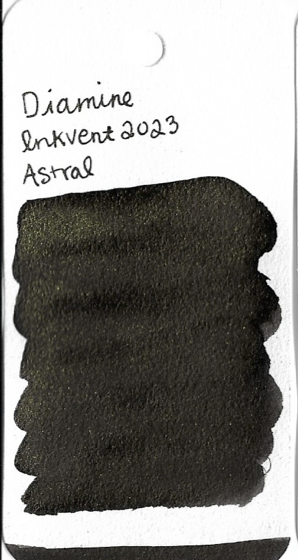 Diamine
Inkvent 2023
Astral